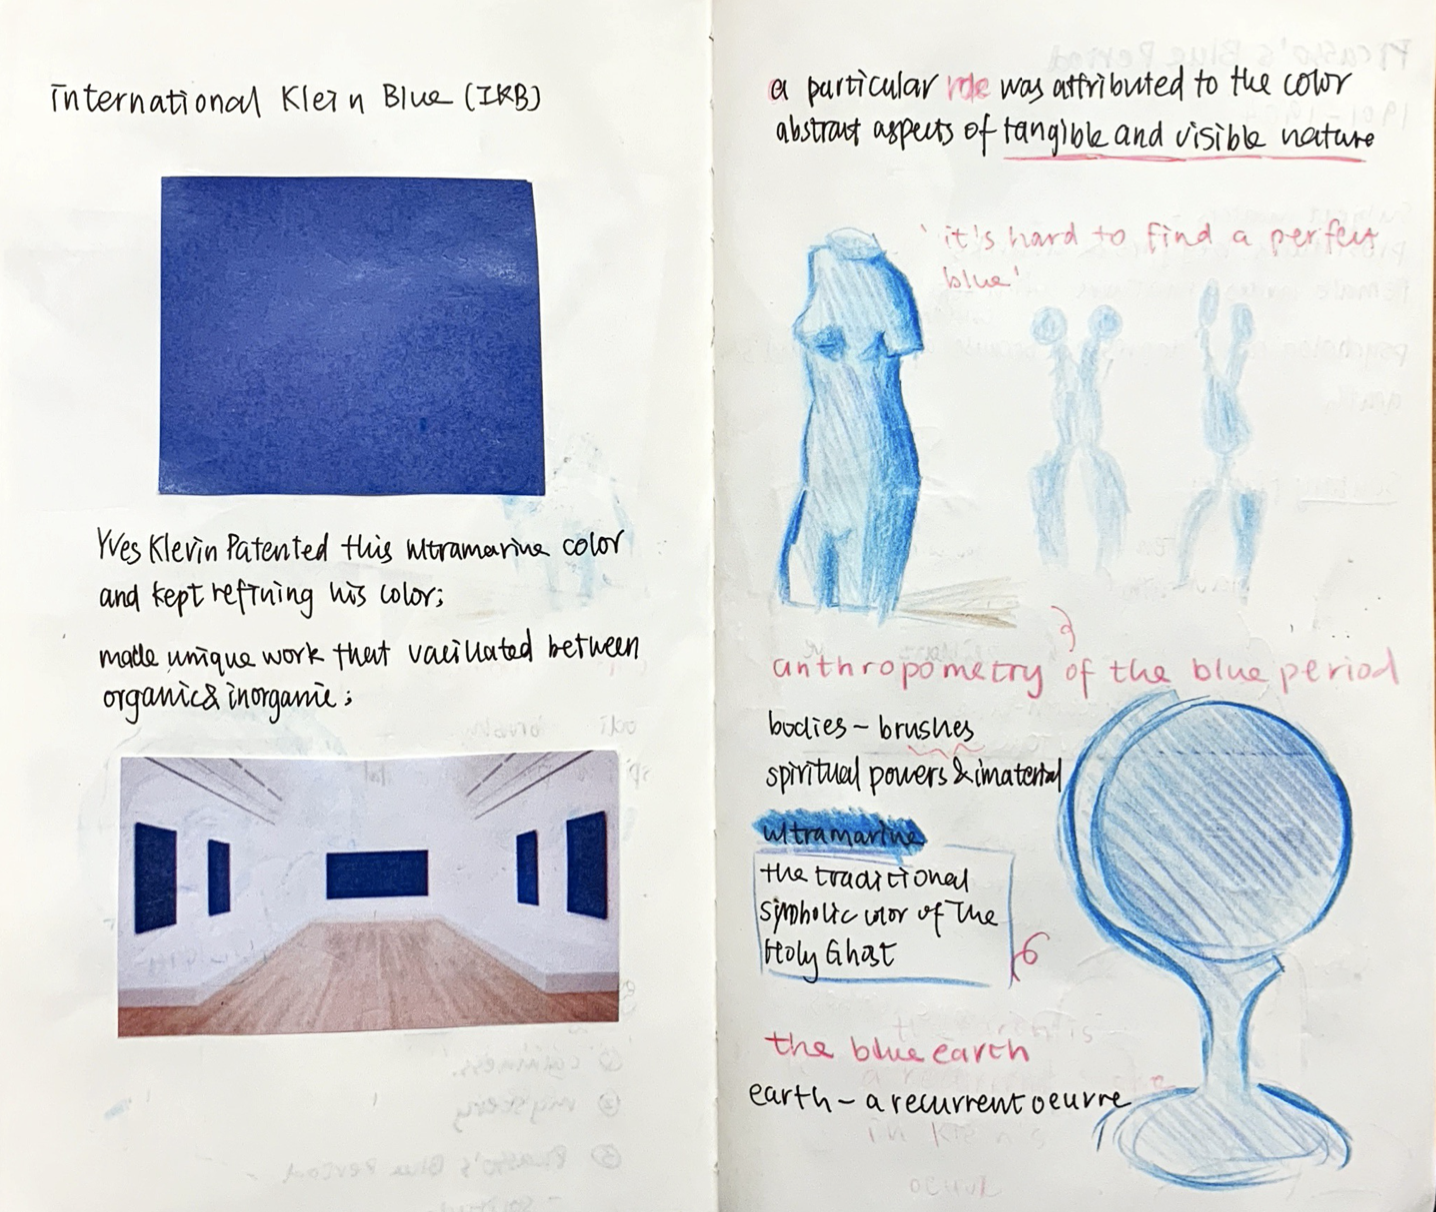 international Klein Blue (IKB)
Yves Klevin Patented this ultramarine color
and kept refining his color;
made unique work that vacillated between
organic & inorganic;
a particular role was attributed to the color
abstract aspects of tangible and visible nature
'it's hard to find a perfect
blue'
anthropometry of the blue period
bodies – brushes
spiritual powers & imaterial
ultramarine
the traditional
symbolic color of The
Holy Ghost
the blue earth
earth – a recurrent oeuvre